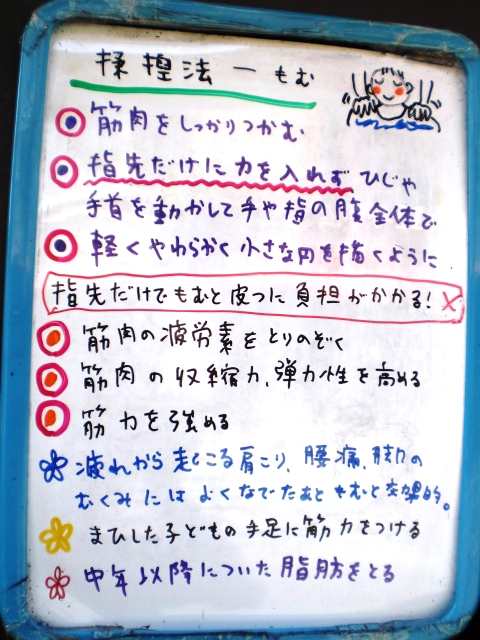 揉捏法 － もむ
筋肉をしっかりつかむ
指先だけに力を入れず ひじや
手首を動かして手や指の腹全体で
軽くやわらかく小さな円を描くように
指先だけでもむと皮フに負担がかかる! ×
筋肉の疲労素をとりのぞく
筋肉の収縮力、弾力性を高める
筋力を強める
疲れから起こる肩こり、腰痛、脚の
むくみにはよくなでたあともむと効果的。
まひした子どもの手足に筋力をつける
中年以降についた脂肪をとる